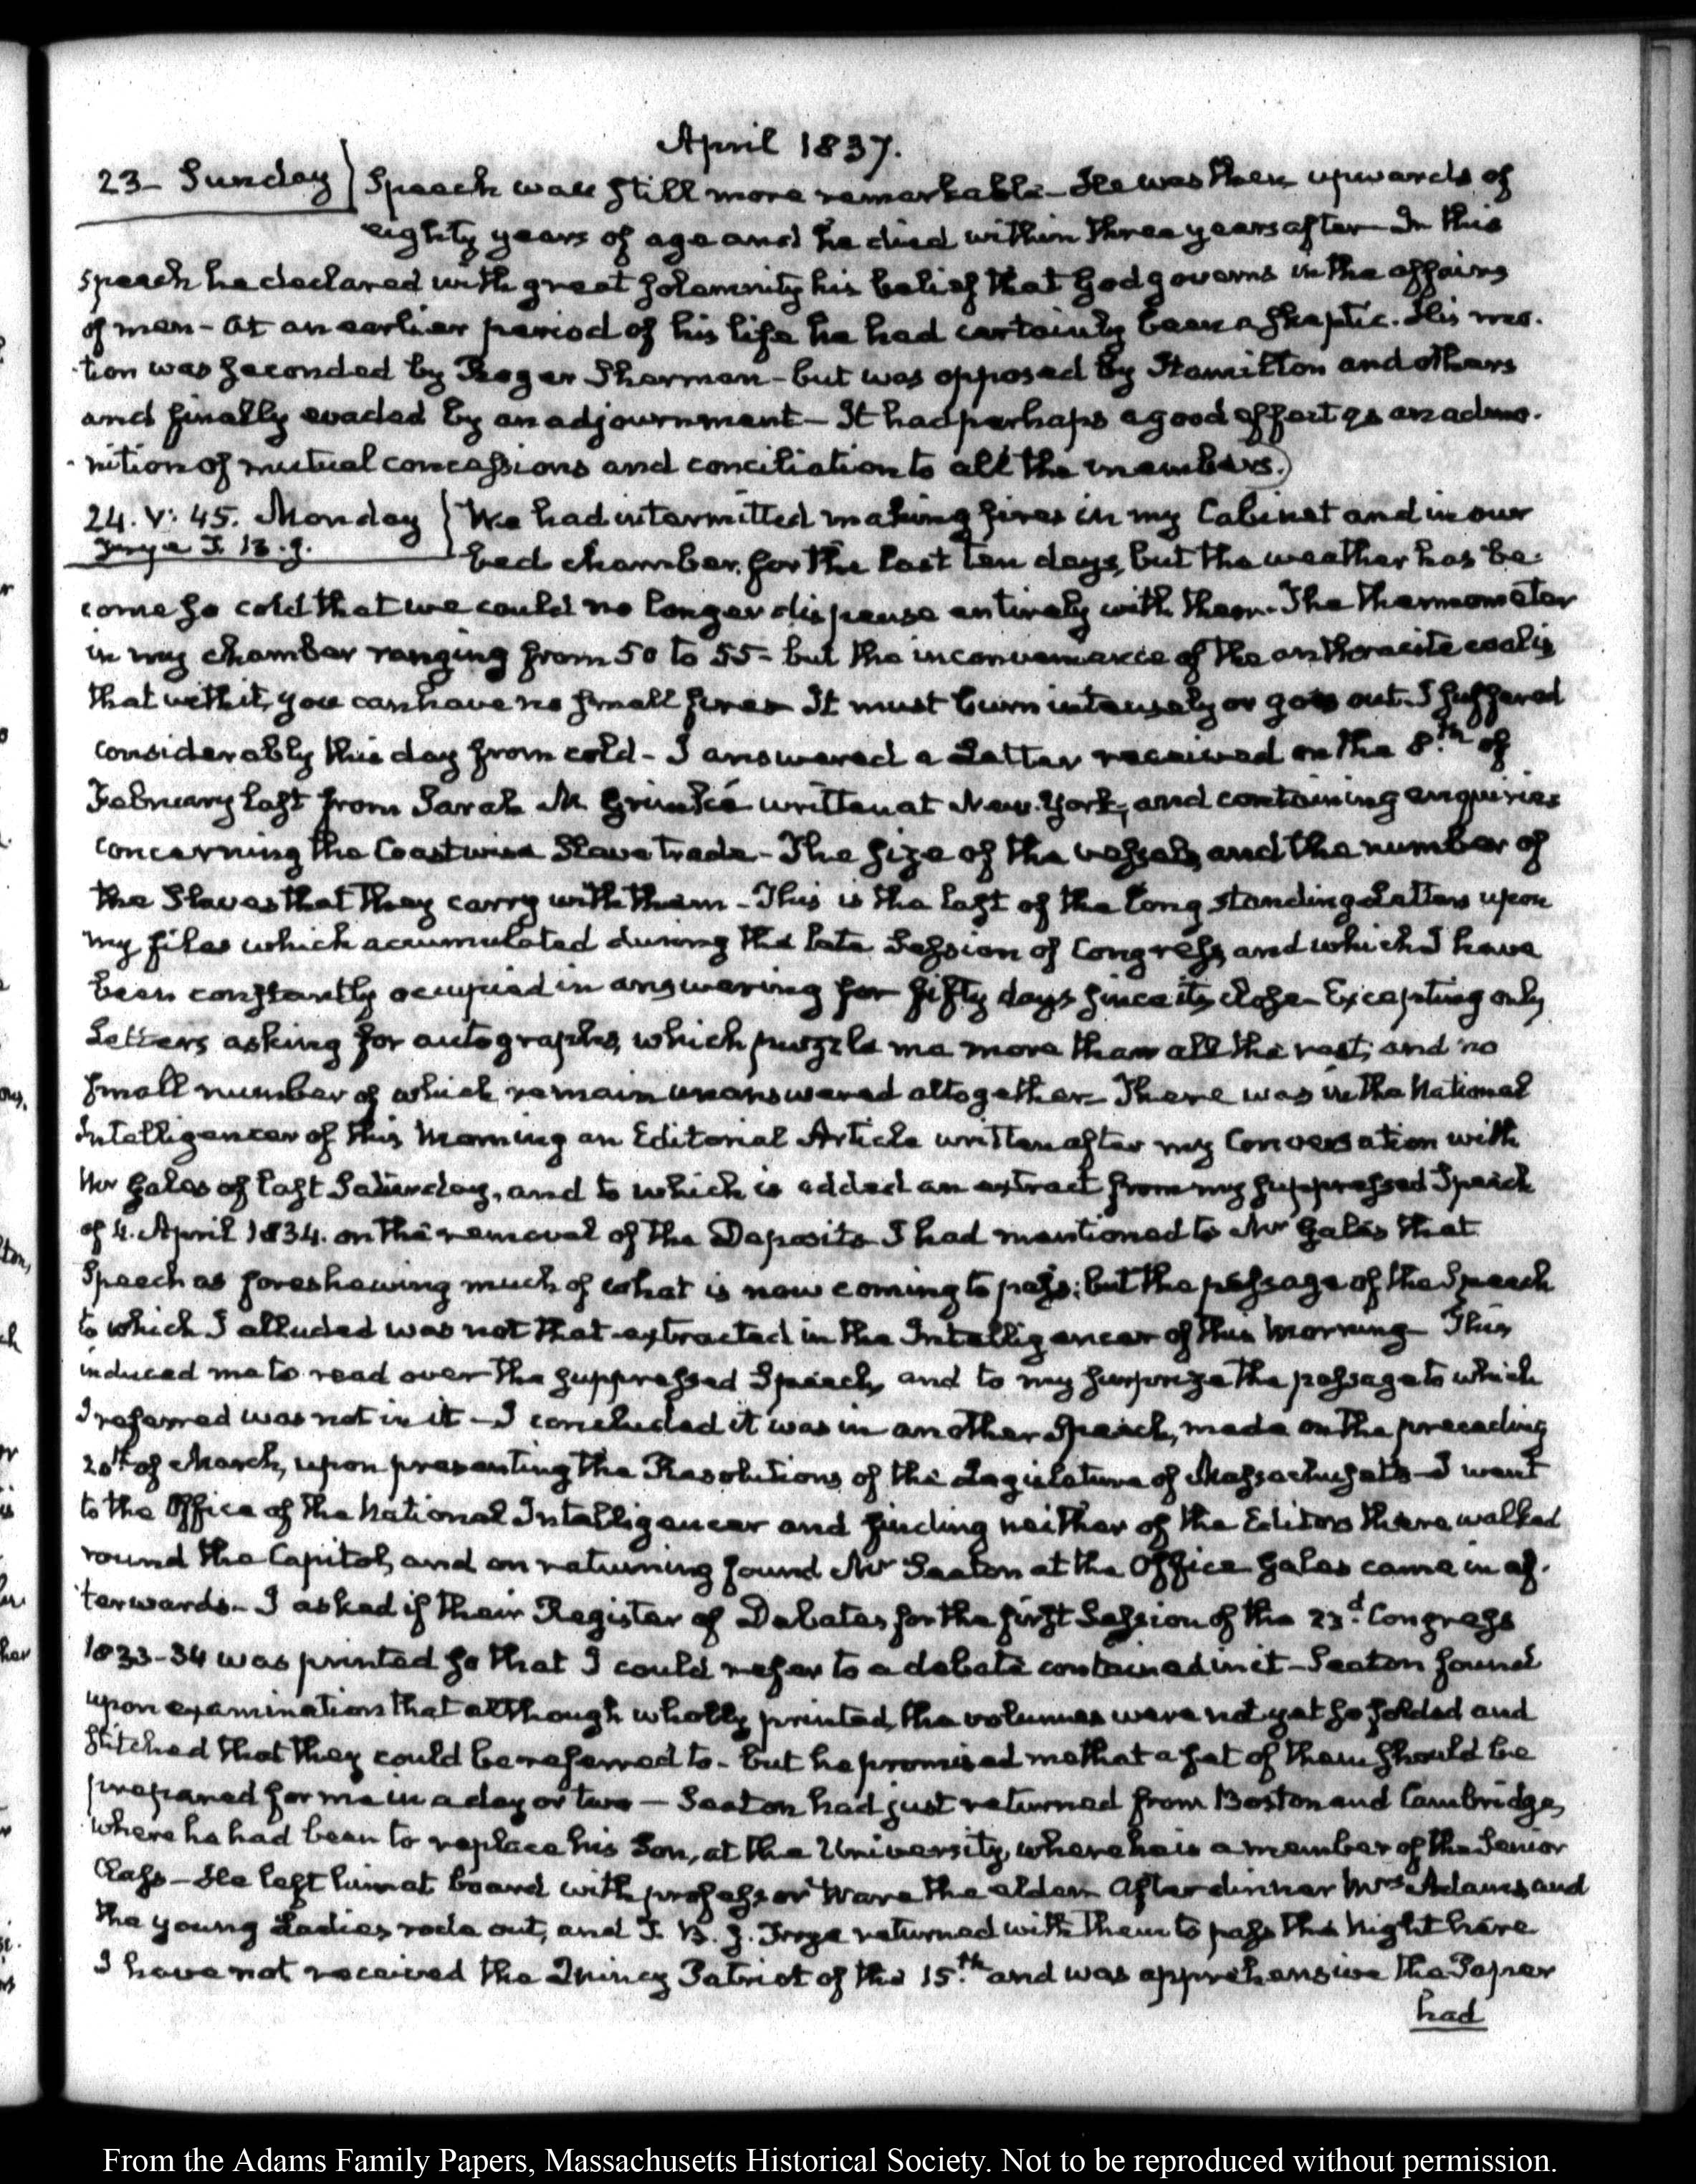 April 1837.
23- Sunday } Speech was still more remarkable- He was then upwards of
eighty years of age and he died within three years after- In this
Speech he declared with great solemnity his belief that God governs in the affairs
of men- At an earlier period of his life he had certainly been a skeptic. His mo-
-tion was seconded by Roger Sherman- but was opposed by Hamilton and others
and finally evaded by an adjournment- It had perhaps a good effect as an admo-
-nition of mutual concessions and conciliation to all the members.)
24. V: 45. Monday } We had intermitted making fires in my Cabinet and in our
Frye T. B. J.
bed chamber, for the last ten days, but the weather has be-
come so cold that we could no longer dispense entirely with them- The thermometer
in my chamber ranging from 50 to 55- but the inconvenience of the anthracite coal is
that with it, you can have no small fires It must burn intensely or goes out. I suffered
considerably this day from cold- I answered a Letter received on the 8th of
February last from Sarah M Grimké written at New-York, and containing enquiries
concerning the Coastwise Slave trade- The size of the vessels, and the number of
the Slaves that they carry with them- This is the last of the long standing Letters upon
my files which accumulated during the late Session of Congress, and which I have
been constantly occupied in answering for fifty days since its close- Excepting only
Letters asking for autographs, which puzzle me more than all the rest; and no
small number of which remain unanswered altogether- There was in the National
Intelligencer of this Morning an Editorial Article written after my Conversation with
Mr Gales of last Saturday, and to which is added an extract from my suppressed Speech
of 4. April 1834. on the removal of the Deposits- I had mentioned to Mr Gales that
Speech as foreshewing much of what is now coming to pass; but the passage of the Speech
to which I alluded was not that extracted in the Intelligencer of this Morning- This
induced me to read over the suppressed Speech, and to my surprize the passage to which
I referred was not in it- I concluded it was in another Speech, made on the preceding
20th of March, upon presenting the Resolutions of the Legislature of Massachusetts- I went
to the Office of the National Intelligencer and finding neither of the Editors there, walked
round the Capitol, and on returning found Mr Seaton at the Office Gales came in af-
-terwards- I asked if their Register of Debates for the first Session of the 23d. Congress
1833-34 was printed so that I could refer to a debate contained in it- Seaton found
upon examinations that although wholly printed, the volumes were not yet so folded and
stitched that they could be referred to- but he promised me that a set of them should be
prepared for me in a day or two- Seaton had just returned from Boston and Cambridge,
where he had been to replace his Son, at the University, where he is a member of the Senior
Class- He left him at board with professor Ware the elder. After dinner Mrs Adams and
the young Ladies rode out, and T. B. J. Frye returned with them to pass the Night here
I have not received the Quincy Patriot of the 15th. and was apprehensive the Paper
had
From the Adams Family Papers, Massachusetts Historical Society. Not to be reproduced without permission.